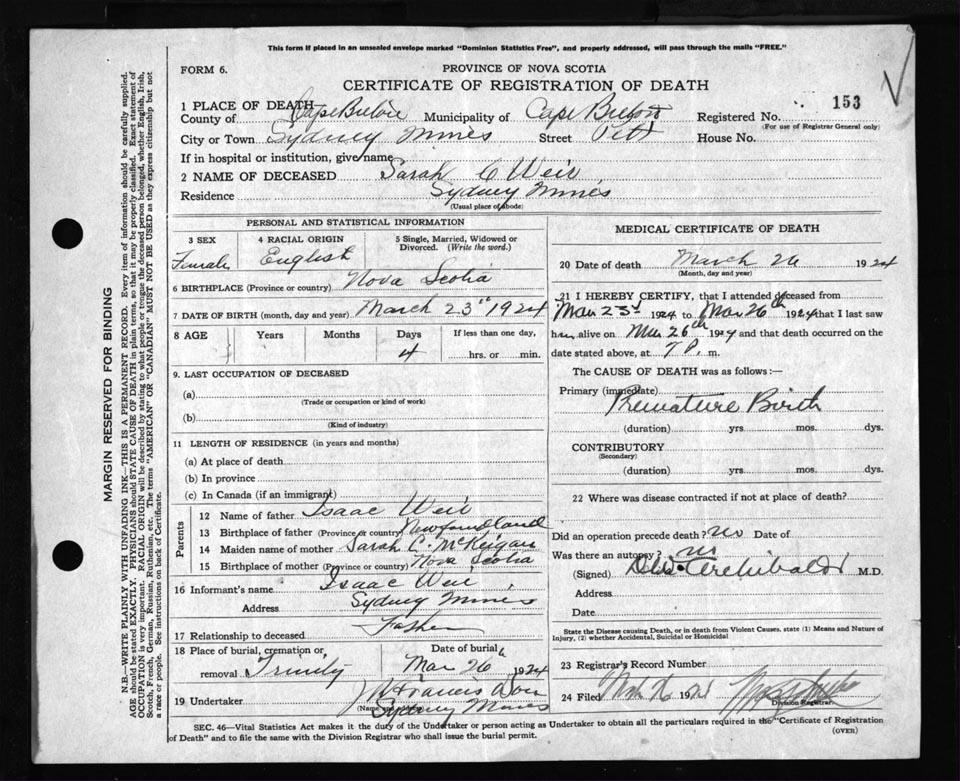 This form if placed in an unsealed envelope marked "Dominion Statistics Free", and properly addressed, will pass through the mails "FREE."
FORM 6.
PROVINCE OF NOVA SCOTIA
CERTIFICATE OF REGISTRATION OF DEATH
153
1 PLACE OF DEATH
County of Cape Breton Municipality of Cape Breton Registered No.
(For use of Registrar General only)
City or Town Sydney Mines Street Pitt House No.
If in hospital or institution, give name
2 NAME OF DECEASED Sarah C Weir
Residence Sydney Mines
(Usual place of abode)
PERSONAL AND STATISTICAL INFORMATION
3 SEX 4 RACIAL ORIGIN 5 Single, Married, Widowed or Divorced. (Write the word.)
Female English
6 BIRTHPLACE (Province or country) Nova Scotia
7 DATE OF BIRTH (month, day and year) March 23rd 1924
8 AGE Years Months Days If less than one day,
4 hrs. or min.
9. LAST OCCUPATION OF DECEASED
(a)
(Trade or occupation or kind of work)
(b)
(Kind of industry)
11 LENGTH OF RESIDENCE (in years and months)
(a) At place of death
(b) In province
(c) In Canada (if an immigrant)
Parents
12 Name of father Isaac Weir
13 Birthplace of father (Province or country) Newfoundland
14 Maiden name of mother Sarah C. McKeigan
15 Birthplace of mother (Province or country) Nova Scotia
16 Informant's name Isaac Weir
Address Sydney Mines
17 Relationship to deceased Father
18 Place of burial, cremation or removal Trinity Date of burial Mar 26 1924
19 Undertaker Francis
(Name Sydney Mines
MEDICAL CERTIFICATE OF DEATH
20 Date of death March 26 1924
(Month, day and year)
21 I HEREBY CERTIFY, that I attended deceased from
Mar 23rd 1924 to Mar 26th 1924 that I last saw
her alive on Mar 26th 1924 and that death occurred on
date stated above, at 7 P. m.
The CAUSE OF DEATH was as follows:—
Primary (immediate) Premature Birth
(duration) yrs. mos. dys.
CONTRIBUTORY
(Secondary)
(duration) yrs. mos. dys.
22 Where was disease contracted if not at place of death?
Did an operation precede death? no Date of
Was there an autopsy? no
(Signed) Archibald M.D.
Address
Date
State the Disease causing Death, or in death from Violent Causes, state (1) Means and Nature of Injury, (2) whether Accidental, Suicidal or Homicidal
23 Registrar's Record Number
24 Filed 26 1924
Division Registrar.
SEC. 46—Vital Statistics Act makes it the duty of the Undertaker or person acting as Undertaker to obtain all the particulars required in the "Certificate of Registration
of Death" and to file the same with the Division Registrar who shall issue the burial permit.
(OVER)
MARGIN RESERVED FOR BINDING
N.B.—WRITE PLAINLY WITH UNFADING INK—THIS IS A PERMANENT RECORD. Every item of information should be carefully supplied.
AGE should be stated EXACTLY. PHYSICIANS should STATE CAUSE OF DEATH in plain terms, so that it may be properly classified. Exact statement of
OCCUPATION is very important. RACIAL ORIGIN will be described by stating to what people or tongue the deceased person belonged, whether English, Irish,
Scotch, French, German, Russian, Ruthenian, etc. The terms "AMERICAN" OR "CANADIAN" MUST NOT BE USED as they express citizenship but not
a race or people. See instructions on back of Certificate.